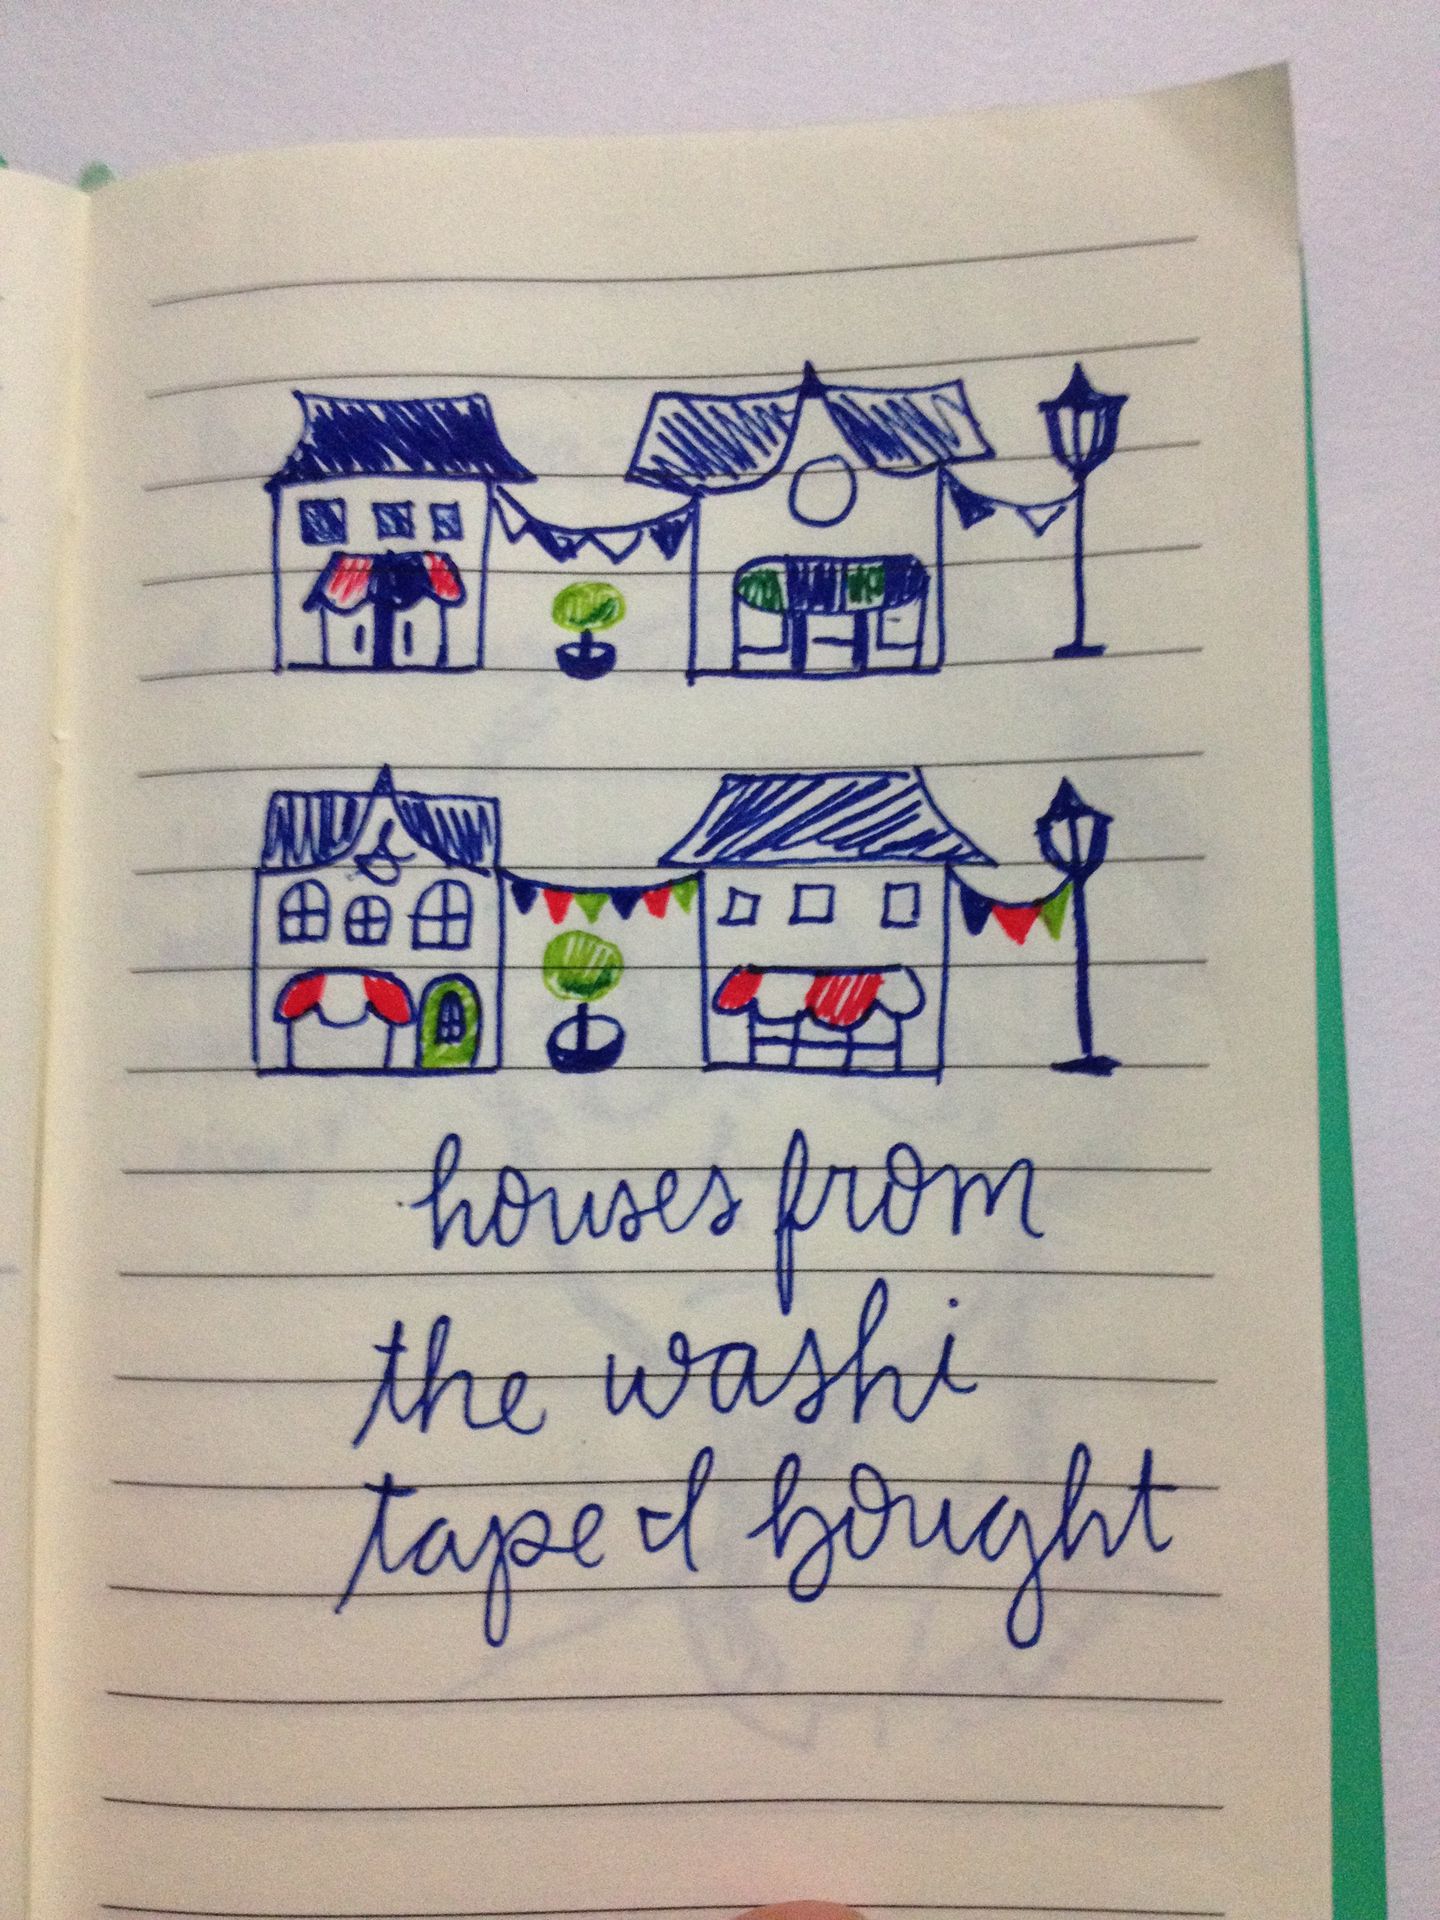 houses from
the washi
tape I bought